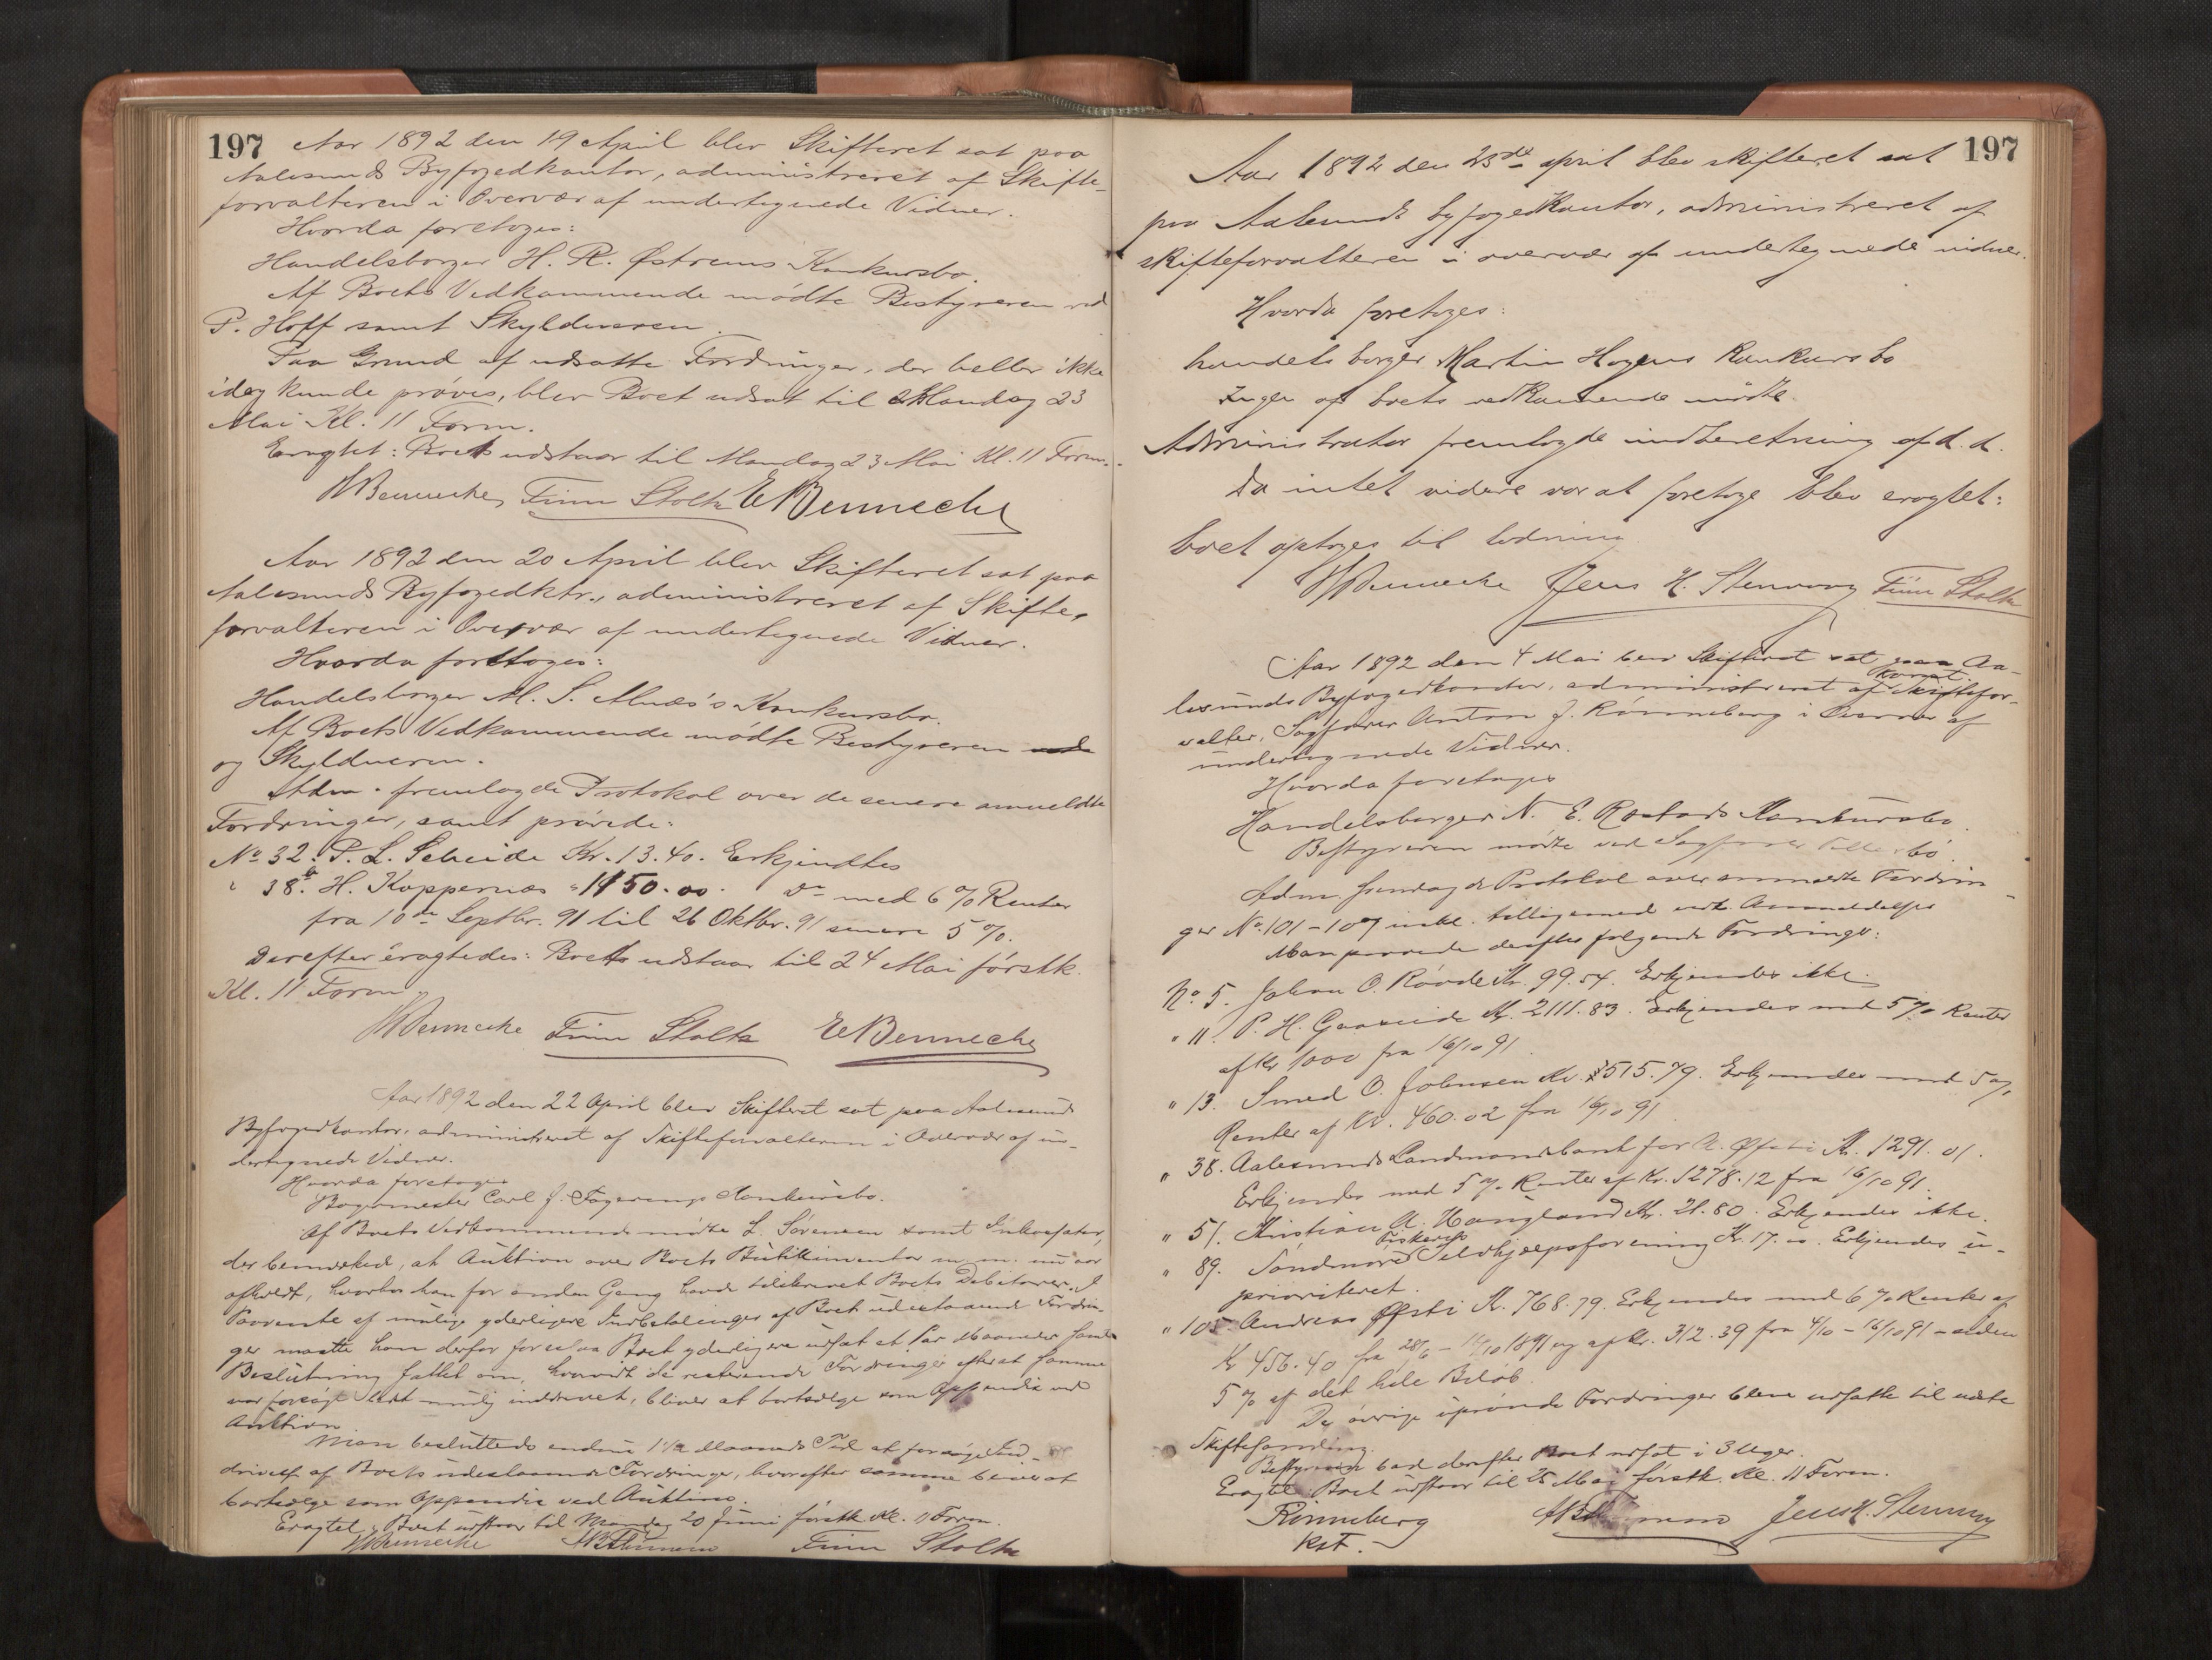 197
Aar 1892 den 19 April blev Skifteret sat paa
Aalesunds Byfogedkontor, administreret af Skifte-
forvalteren i Overvær af undertegnede Vidner.
Hvorda foretoges:
Handelsborger H. R. Østrems Konkursbo.
Af Boets Vedkommende mødte Bestyreren ved
P. Hoff samt Skyldneren.
Paa Grund af udsatte Fordringer, der heller ikke
idag kunde prøves, blev Boet udsat til Mandag 23
Mai Kl. 11 Form.
Eragtet: Boet udstaar til Mandag 23 Mai Kl. 11 Form.
WBennecke Finn Stoltz EBenneche
Aar 1892 den 20 April blev Skifteret sat paa
Aalesunds Byfogedktr., administreret af Skifte-
forvalteren i Overvær af undertegnede Vidner.
Hvorda foretoges:
Handelsborger M. S. Alnæs's Konkursbo.
Af Boets Vedkommende mødte Bestyreren
og Skyldneren.
Adm. fremlagde Protokol over de senere anmeldte
Fordringer, samt prøvede:
No 32. P. L. Scheide Kr. 13.40. Erkjendtes
" 38b. H. Koppernæs " 1150.00. Do med 6 % Renter
fra 10de Septbr. 91 til 26 Oktbr. 91 senere 5 %.
Derefter eragtedes: Boet udstaar til 24 Mai førstk.
Kl. 11 Form.
WBennecke Finn Stoltz EBennecke
Aar 1892 den 22 April blev Skifteret sat paa Aalesunds
Byfogedkontor, administreret af Skifteforvalteren i Overvær af un-
dertegnede Vidner.
Hvorda foretoges
Bagermester Carl J. Fagerengs Konkursbo.
Af Boets Vedkommende mødte L. Sørensen samt Inkassator,
der bemærked, at Auktion over Boets Butikinventar m. m. nu var
afholdt, hvorhos han for anden Gang havde tilskrevet Boets Debitorer. I
Paavente af mulige yderligere Indbetalinger af Boets udestaaende Fordrin-
ger maatte han derfor foreslaa Boet yderligere udsat et Par Maaneder samt
Beslutning fattet om, hvorvidt de resterende Fordringer efterat samme
var forsøgt bedst mulig inddrevet, bliver at bortsælge som Appendix ved
Auktion
Man besluttede endnu 1 1/2 Maaneds Tid at forsøge Ind-
drivelse af Boets udestaaende Fordringer, hvorefter samme bliver at
bortsælge som Appendix ved Auktion.
Eragtet, Boet udstaar til Mandag 20 Juni førstk. Kl. 11 Form.
WBennecke Finn Stoltz
197
Aar 1892 den 23de april blev skifteret sat
paa Aalesunds byfogedkontor, administreret af
skifteforvalteren i overvær af undertegnede vidner.
Hvorda foretoges:
handelsborger Martin Hagens konkursbo
Ingen af boets vedkommende mødte
Administrator fremlagde indberetning af d. d.
Da intet videre var at foretage blev eragtet:
boet optages til lodning
WBennecke Jens H. Stenvaag Finn Stoltz
Aar 1892 den 4 Mai blev Skifteret sat paa Aa-
lesunds Byfogedkontor, administreret af Konst. Skiftefor-
valter, Sagfører Anton J. Rønneberg i Overvær af
undertegnede Vidner.
Hvorda foretoges
Handelsborger N. E. Rostads Konkursbo.
Bestyreren mødte ved Sagfører
Adm. fremlagde Protokol over anmeldte Fordrin-
ger No. 101-107 inkl. tilligemed Anmeldelser
Man prøvede derefter følgende Fordringer:
No 5. Johan O. Røvde Kr. 99.54. Erkjendes ikke.
" 11. P. H. Gaaseide Kr. 2111.83. Erkjendes med 5 % Renter
af Kr 1000 fra 16/10 91.
" 13. Smed O. Johnsen Kr. 515.79. Erkjendes med 5 %
Renter af Kr. 460.02 fra 16/10 91
" 38. Aalesunds Landmandsbank for A. Øfsti Kr. 1291.01.
Erkjendes med 5 % Renter af Kr. 1278.12 fra 16/10 91.
" 51. Kristian A. Haugland Kr. 21.80. Erkjendes ikke.
" 89. Søndmøre Fiskeres Selvhjælpsforening Kr. 17.00. Erkjendes u-
prioriteret.
" 105 Andreas Øfsti Kr. 768.79. Erkjendes med 6 % Renter af
Kr 456.40 fra 28/6 - 16/10 1891 og af Kr. 312.39 fra 4/10 - 16/10 91 - siden
5 % af det hele Beløb.
De øvrige uprøvede Fordringer bleve udsatte til næste
Skiftesamling.
Bestyreren bad derefter Boet udsat i 3 Uger.
Eragtet: Boet udstaar til 25 Mai førstk. Kl. 11 Form.
Rønneberg Jens H. Stenvaag
Kst.